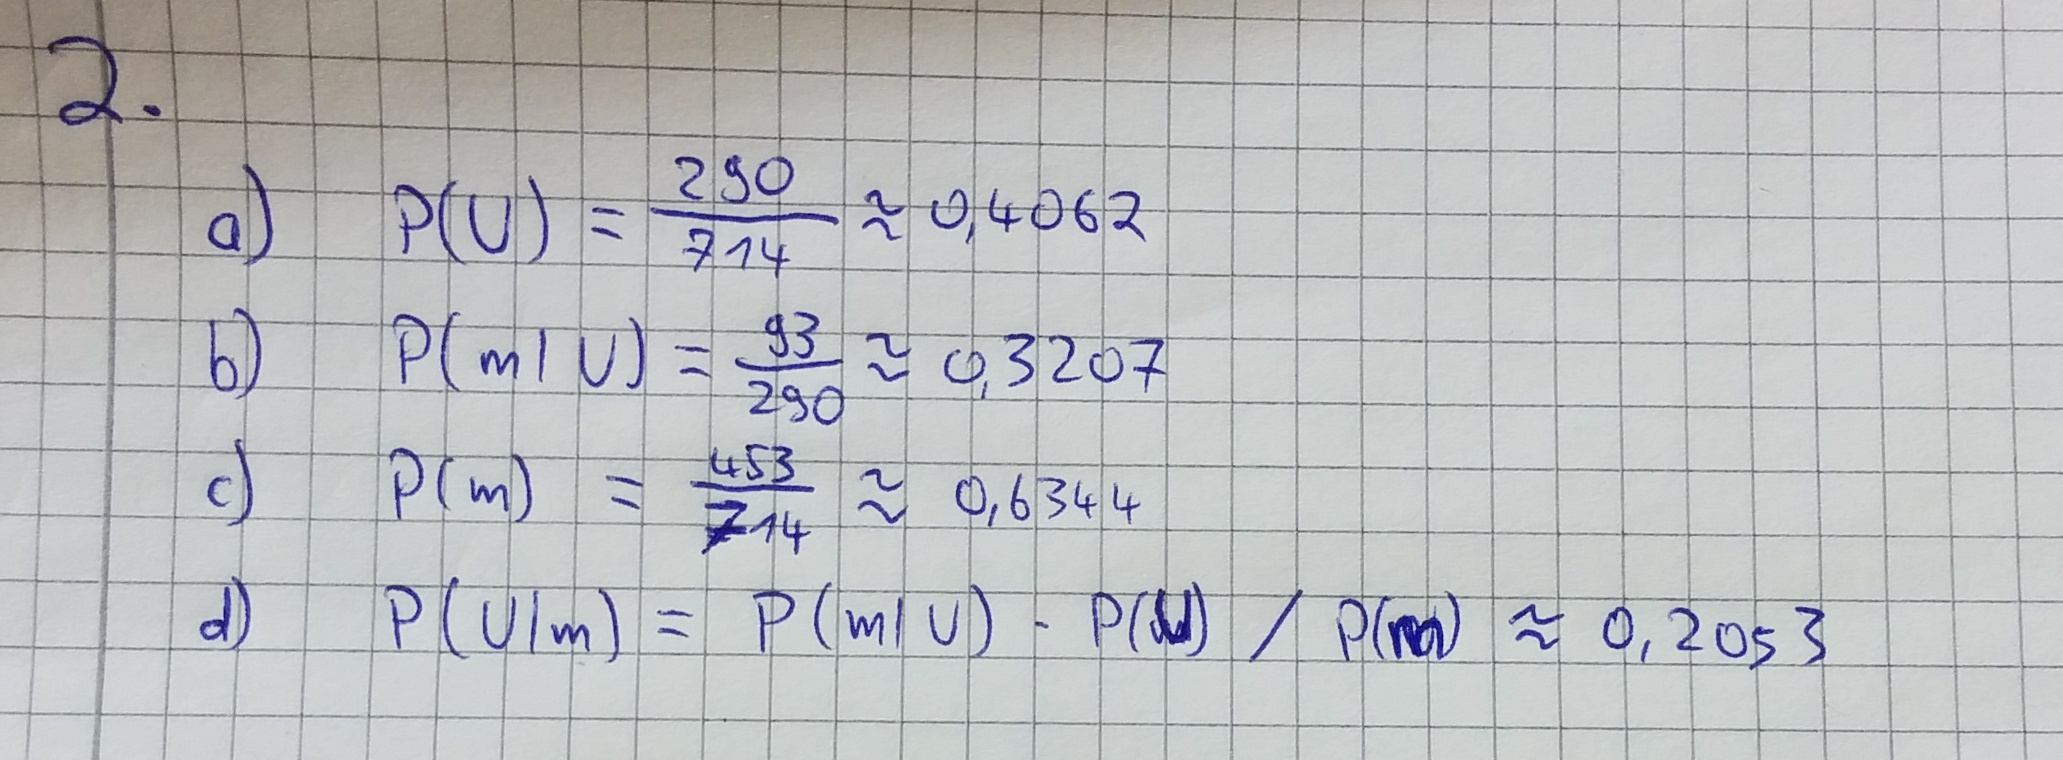 2.
a) P(U) = 290/714 ≈ 0,4062
b) P(m|U) = 93/290 ≈ 0,3207
c) P(m) = 453/714 ≈ 0,6344
d) P(U|m) = P(m|U) · P(U) / P(m) ≈ 0,2053